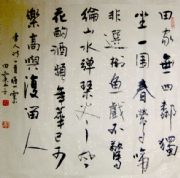 田家無四鄰獨
坐一園春鶯啼
非選樹魚戲不驚
綸山水彈琴盡風
花酌酒頻年華已可
樂高興復留人